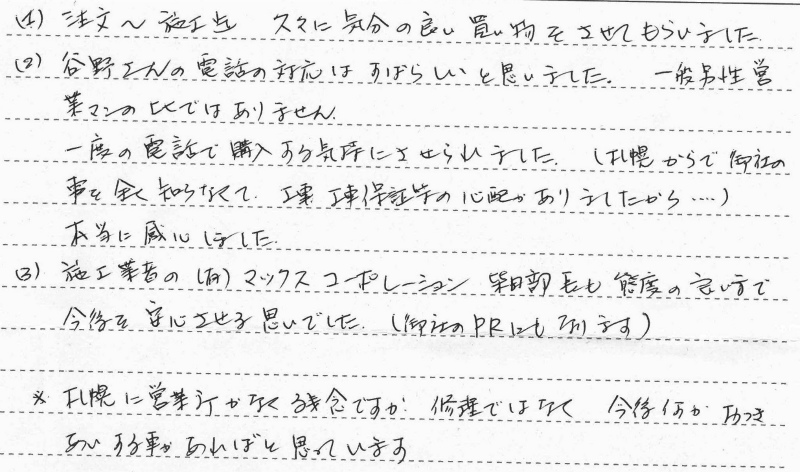 (1) 注文～施工迄 久々に気分の良い買い物をさせてもらいました.
(2) 谷野さんの電話の対応はすばらしいと思いました. 一般男性営
業マンの比ではありません.
一度の電話で購入する気持にさせられました. (札幌からで御社の
事を全く知らなくて. 工事 工事保証等の心配がありましたから....)
本当に感心しました.
(3) 施工業者の(有)マックスコーポレーション 部長も態度の良い方で
今後を安心させる思いでした. (御社のPRにもなります)
※ 札幌に営業所がなく残念ですが. 修理ではなく 今後何かおつき
あいする事があればと思っています